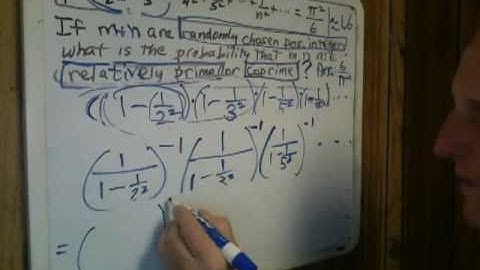 + ··· = π²/6 ≈ 1.6
If m+n are randomly chosen pos. integers
what is the probability that m
relatively prime or coprime? Ans. 6/π²
(1 - 1/2²)·(1 - 1/3²)·(1 - 1/5²)·(1 -
(1/(1 - 1/2²))⁻¹ (1/(1 - 1/3²))⁻¹ (1/(1 - 1/5²))⁻¹ ···
= (